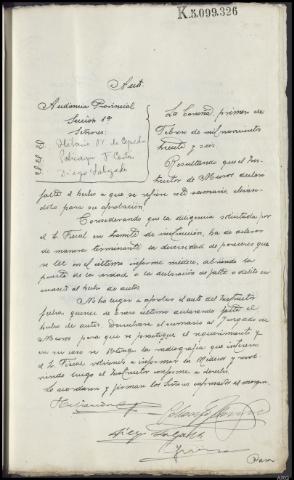 K.5.099.326
Auto.
Audiencia Provincial
Sección 1ª
Señores:
La Coruña, primero de
Febrero de mil novecientos
treinta y seis.
Resultando que el Ins-
tructor de Muros declaró
falta el hecho a que se refiere este sumario, eleván-
dolo para su aprobación.
Considerando que la diligencia solicitada por
el Sr. Fiscal en trámite de instrucción, ha de aclarar
de manera terminante la diversidad de pareceres que
se ve en el último informe médico, abriendo la
puerta de la verdad a la declaración de falta o delito en
cuanto al hecho de autos.
No ha lugar a aprobar el auto del Instructor
fecha quince de Enero último declarando falta el
hecho de autos. Devuélvase el sumario al Juzgado de
Muros para que se practique el reconocimiento y
en su caso se obtenga la radiografía que interesa
el Sr. Fiscal volviendo a informar los Médicos y
luego el Instructor conforme a derecho.
Lo acordaron y firman los Señores expresados al margen.
Diego Salgado